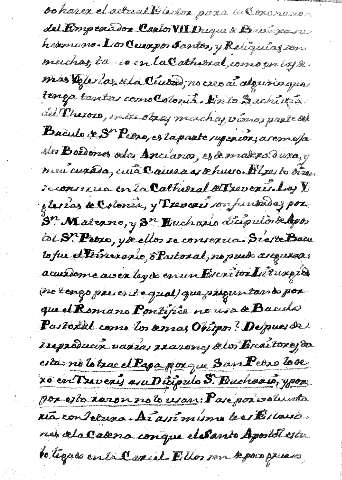 bo hacer el actual Elector para la Coronacion
del Emperador Carlos VII. Duque de Baviera su
hermano. Los Cuerpos Santos, y Reliquias son
muchas, tanto en la Cathedral, como en las de
mas Iglesias de la Ciudad; no creo ai alguna que
tenga tantas como Colonia. En la Sachristia
del Thesoro, entre otras muchas, vimos parte del
Baculo de Sn. Pedro, es la parte superior; asemeja
los Bordones de los Ancianos, es de madera dura, y
mui curada, cuia Cavesa es de hueso. El resto disen
se conserva en la Cathedral de Treveris. Las Y
glesias de Colonia, y Treveris son fundadas por
Sn. Materno, y Sn. Euchario dicipulos de Apos
tol Sn. Pedro, y de ellos se conserva. Si este Bacu
lo fue el Itinerario, o Pastoral, no puedo asegurar:
acuerdome aver leydo en un Escritor Liturgico
(no tengo presente qual) que preguntando por
que el Romano Pontifice no usa de Baculo
Pastoral como los demas Obispos? Despues de
reproducir varias razones de los Escritores, da
esta: no lo trae el Papa, porque San Pedro lo de
xo en Treveris a su Dicipulo Sn. Euchario, y por
por esta razon no lo usan: Pase por voluntaria
con Jetura. Ai assimismo tres Eslavo
nes de la Catena con que el Santo Apostol estu
bo ligado en la Carcel. Ellos son de poco grueso